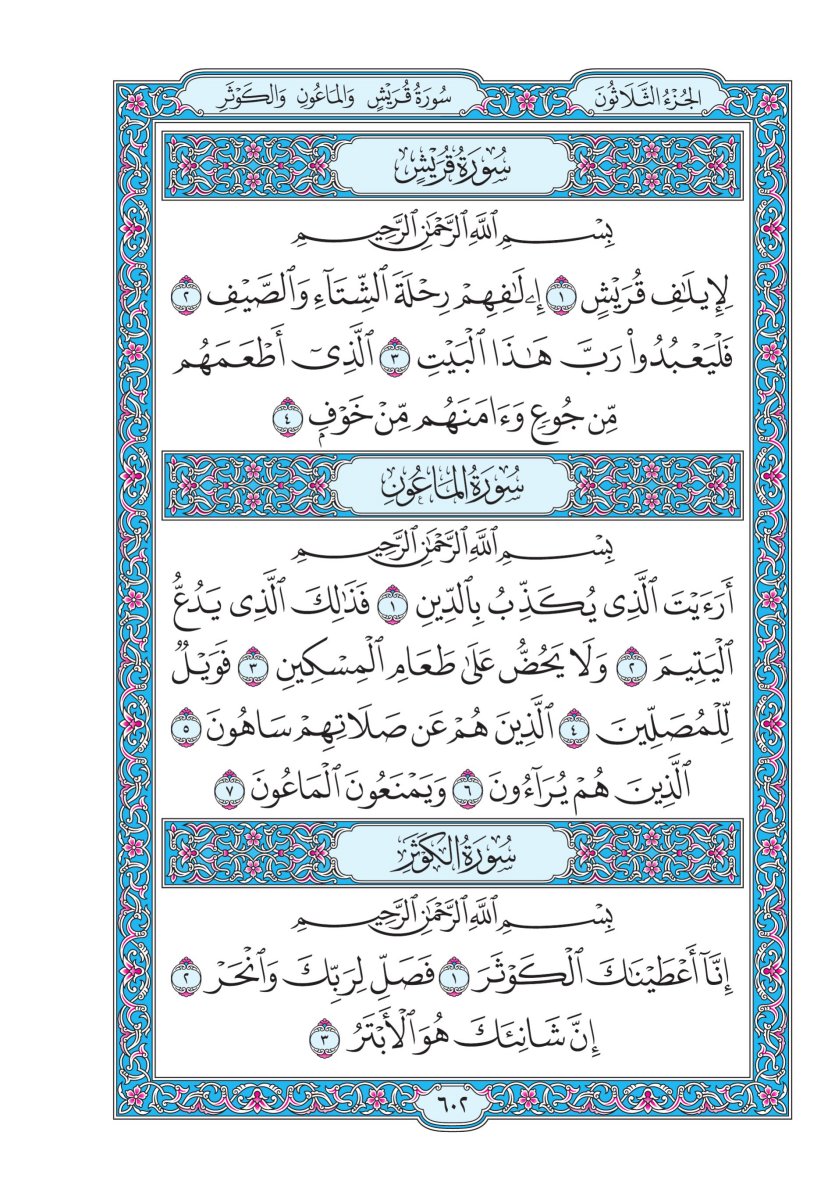 الجُزْءُ الثَّلَاثُونَ
سُورَةُ قُرَيْشٍ وَالمَاعُونِ وَالكَوْثَرِ
سُورَةُ قُرَيْشٍ
بِسْمِ ٱللَّهِ ٱلرَّحْمَٰنِ ٱلرَّحِيمِ
لِإِيلَٰفِ قُرَيْشٍ ١ إِۦلَٰفِهِمْ رِحْلَةَ ٱلشِّتَآءِ وَٱلصَّيْفِ ٢
فَلْيَعْبُدُوا۟ رَبَّ هَٰذَا ٱلْبَيْتِ ٣ ٱلَّذِىٓ أَطْعَمَهُم
مِّن جُوعٍ وَءَامَنَهُم مِّنْ خَوْفٍۭ ٤
سُورَةُ المَاعُونِ
بِسْمِ ٱللَّهِ ٱلرَّحْمَٰنِ ٱلرَّحِيمِ
أَرَءَيْتَ ٱلَّذِى يُكَذِّبُ بِٱلدِّينِ ١ فَذَٰلِكَ ٱلَّذِى يَدُعُّ
ٱلْيَتِيمَ ٢ وَلَا يَحُضُّ عَلَىٰ طَعَامِ ٱلْمِسْكِينِ ٣ فَوَيْلٌ
لِّلْمُصَلِّينَ ٤ ٱلَّذِينَ هُمْ عَن صَلَاتِهِمْ سَاهُونَ ٥
ٱلَّذِينَ هُمْ يُرَآءُونَ ٦ وَيَمْنَعُونَ ٱلْمَاعُونَ ٧
سُورَةُ الكَوْثَرِ
بِسْمِ ٱللَّهِ ٱلرَّحْمَٰنِ ٱلرَّحِيمِ
إِنَّآ أَعْطَيْنَٰكَ ٱلْكَوْثَرَ ١ فَصَلِّ لِرَبِّكَ وَٱنْحَرْ ٢
إِنَّ شَانِئَكَ هُوَ ٱلْأَبْتَرُ ٣
٦٠٢